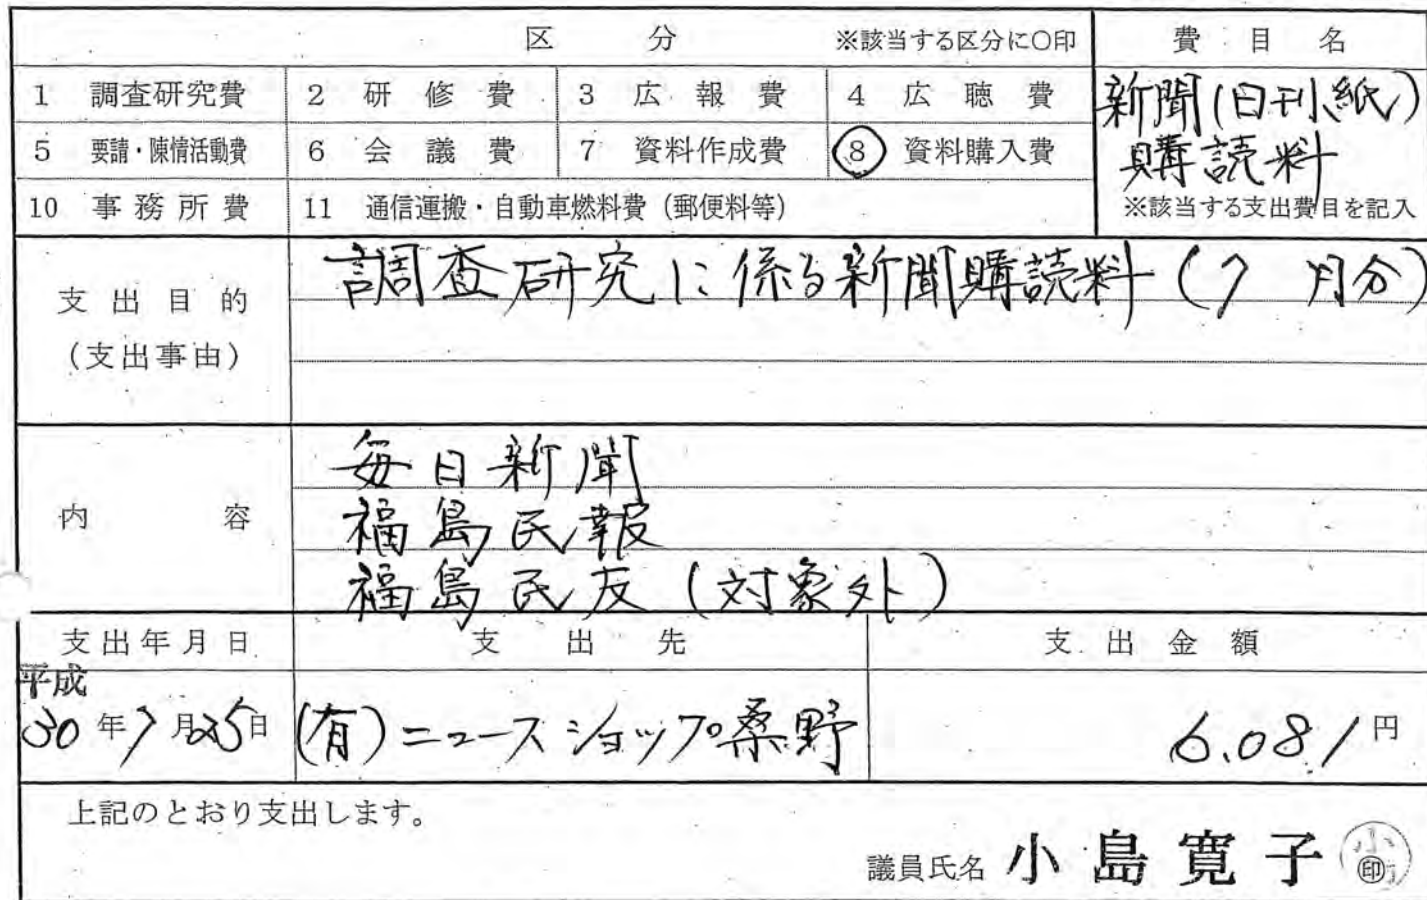 区分 ※該当する区分に○印 費目名
1 調査研究費 2 研修費 3 広報費 4 広聴費 新聞(日刊紙)
5 要請・陳情活動費 6 会議費 7 資料作成費 8 資料購入費 購読料
10 事務所費 11 通信運搬・自動車燃料費(郵便料等) ※該当する支出費目を記入
支出目的 調査研究に係る新聞購読料(7月分)
(支出事由)
毎日新聞
内容 福島民報
福島民友(対象外)
支出年月日 支出先 支出金額
平成
30年7月25日 (有)ニュースショップ桑野 6.081円
上記のとおり支出します。
議員氏名 小島寛子 印